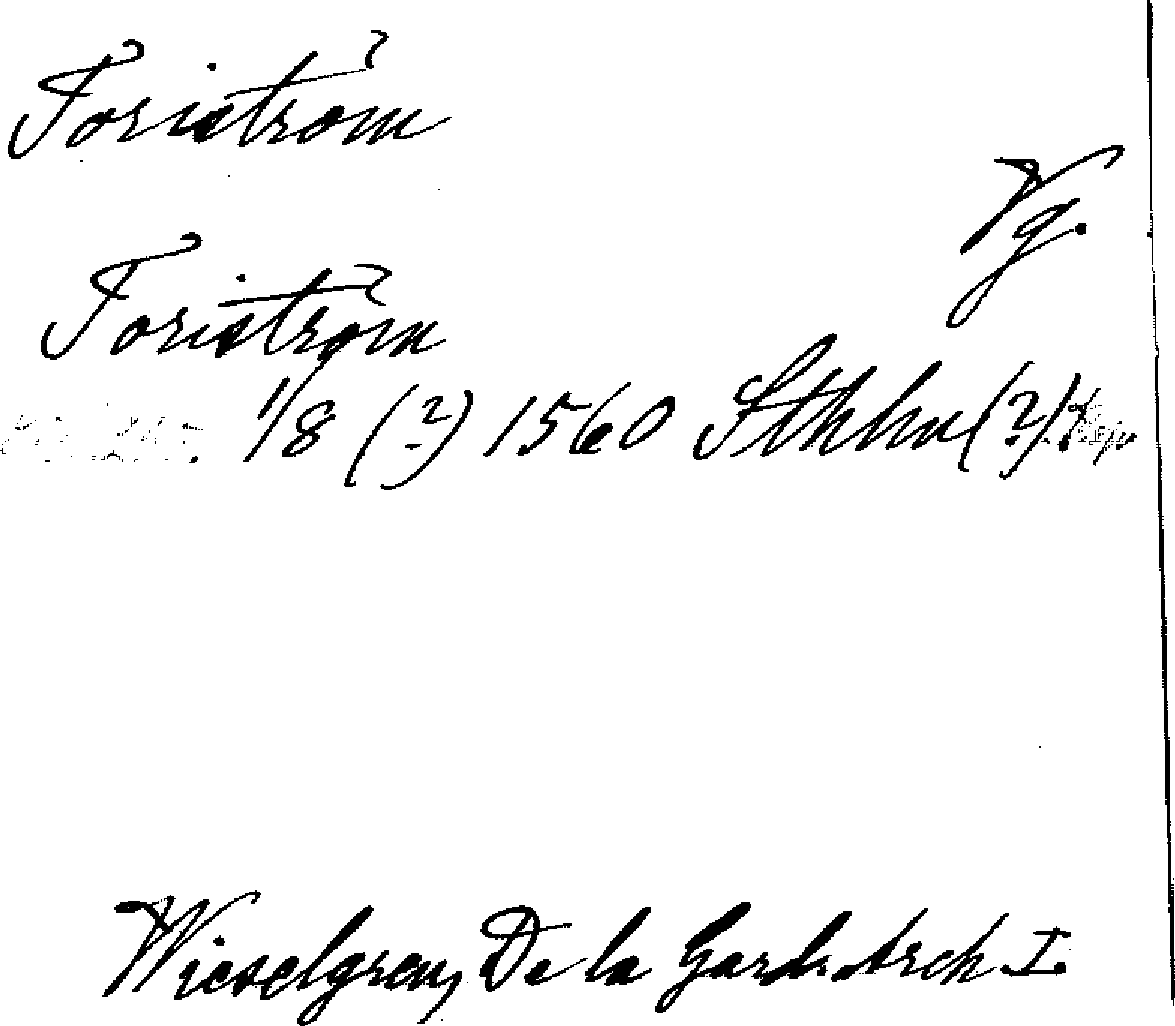 Toriström
Vg.
Toriström
1/8 (?) 1560 Sthlm (?)
Wieselgren, De la Gard. Arch I.